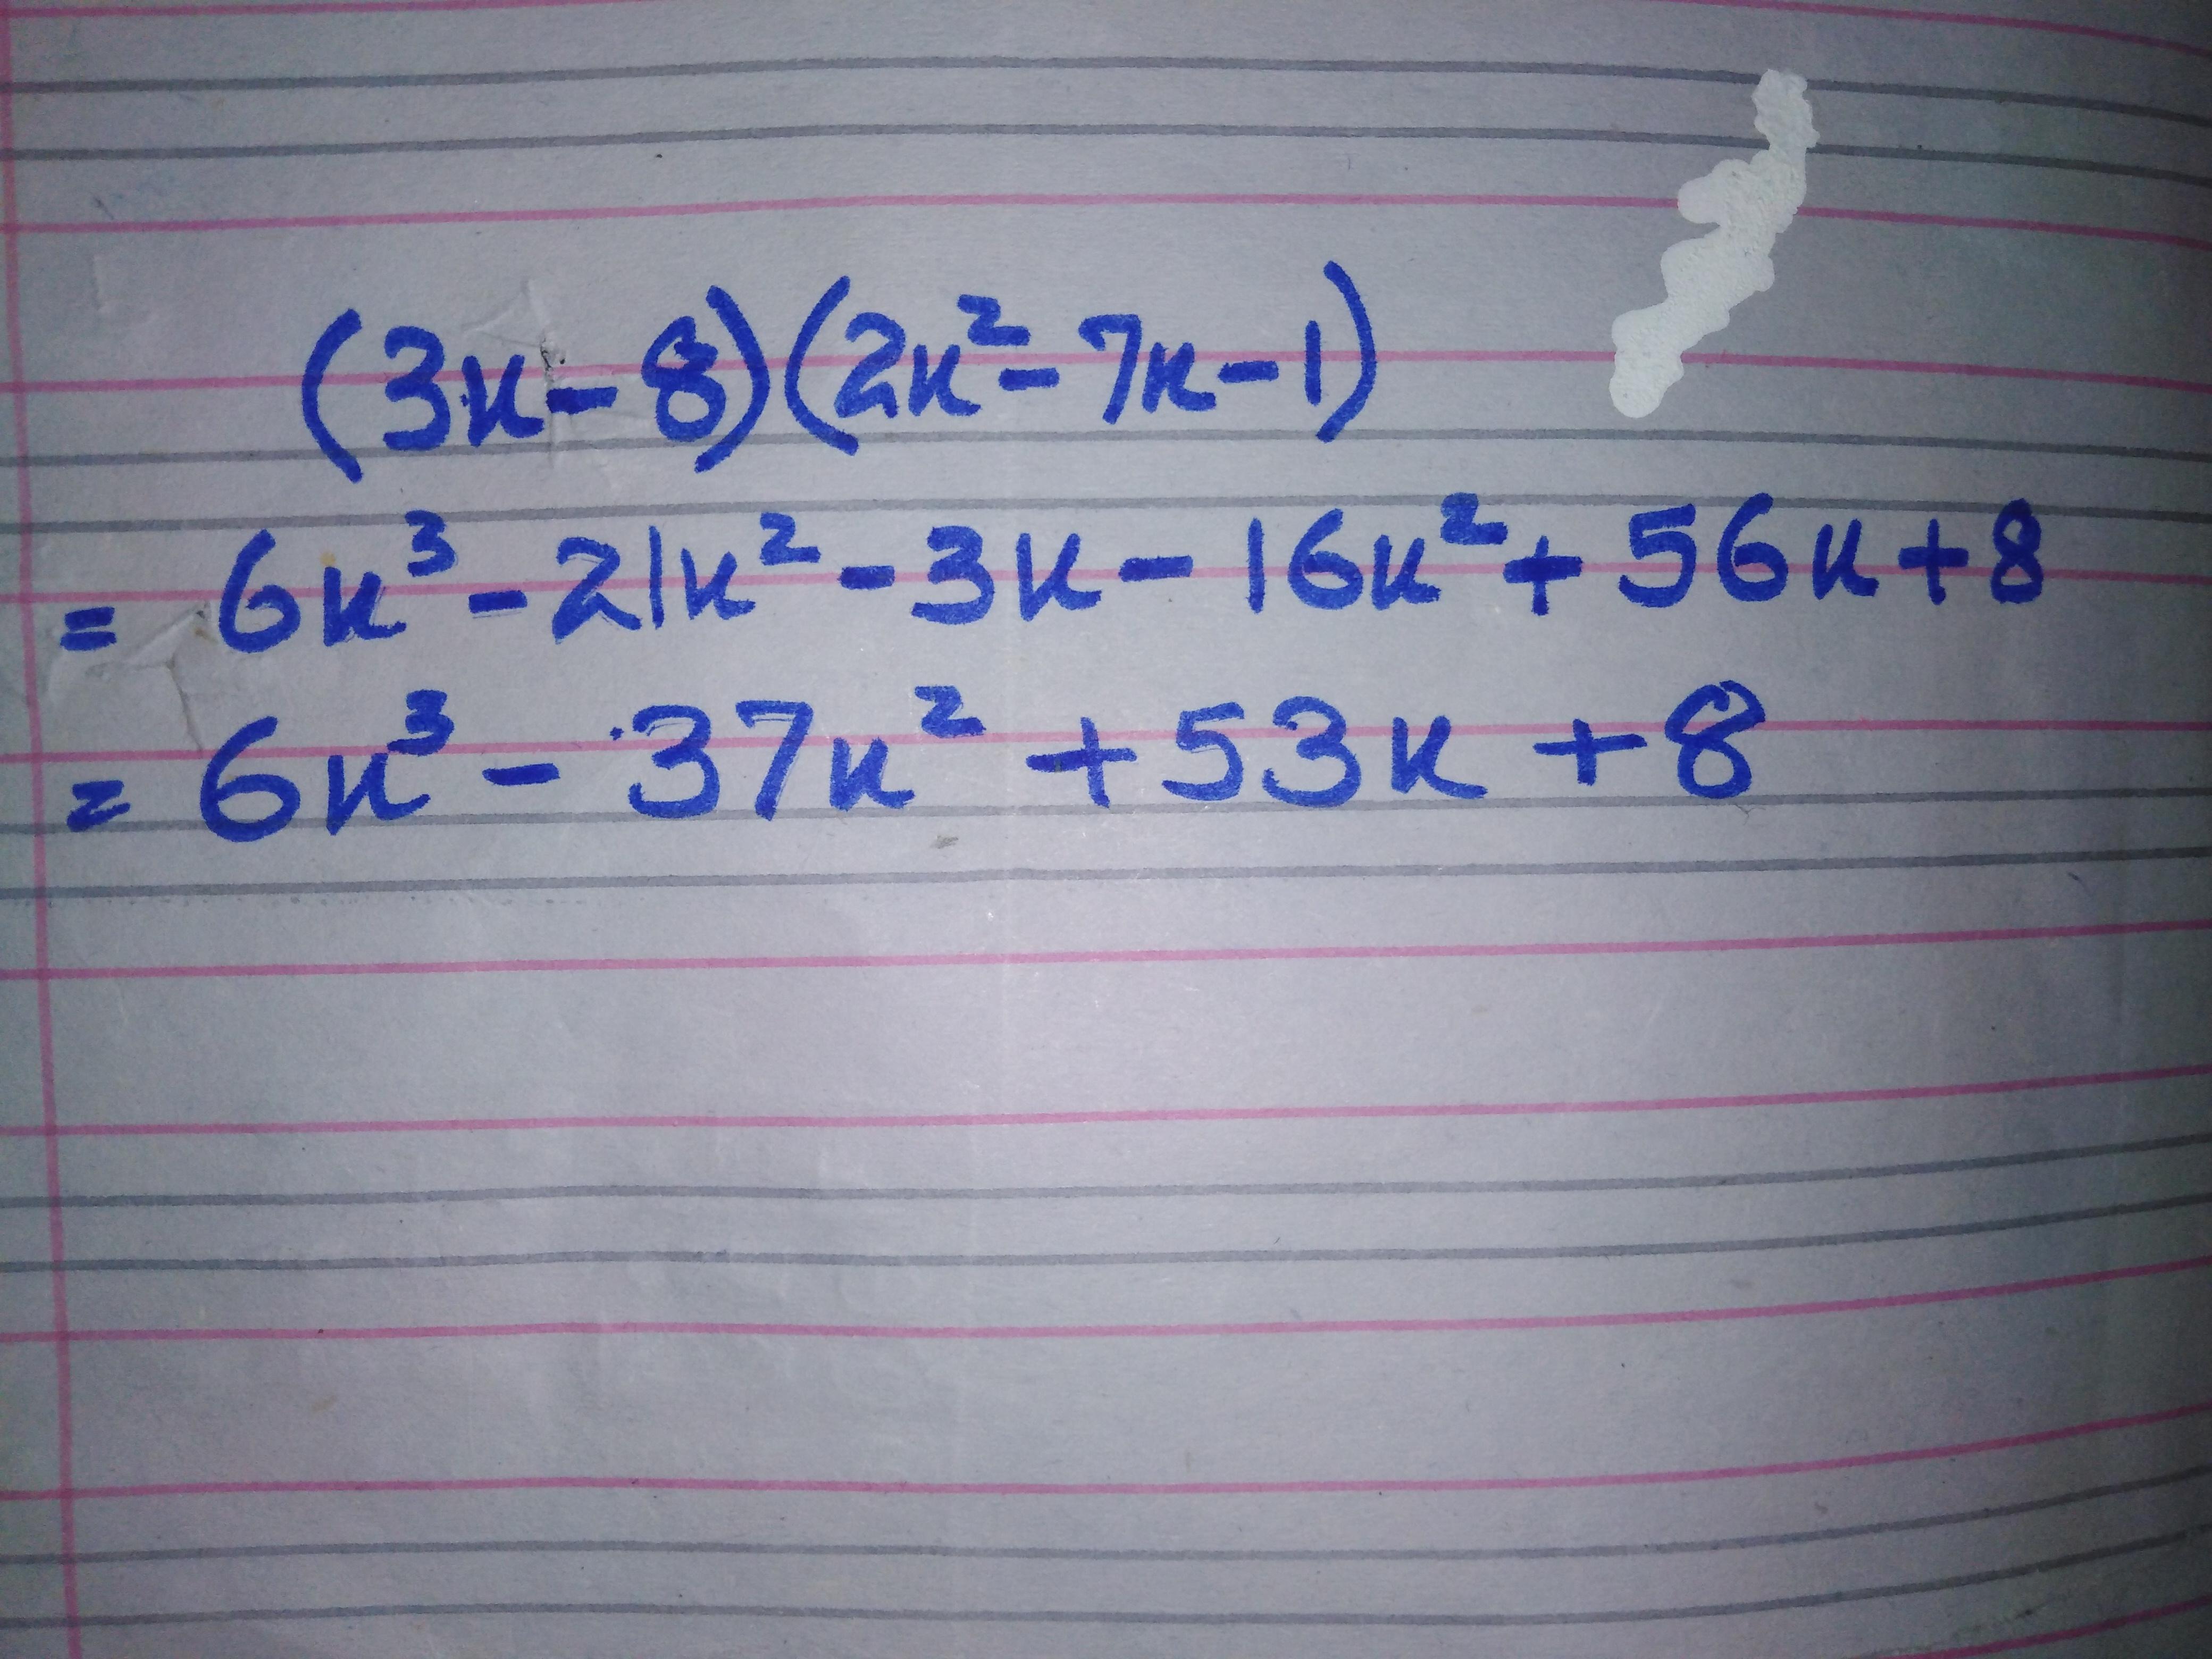 (3x-8)(2x²-7x-1)
= 6x³-21x²-3x-16x²+56x+8
= 6x³-37x²+53x+8